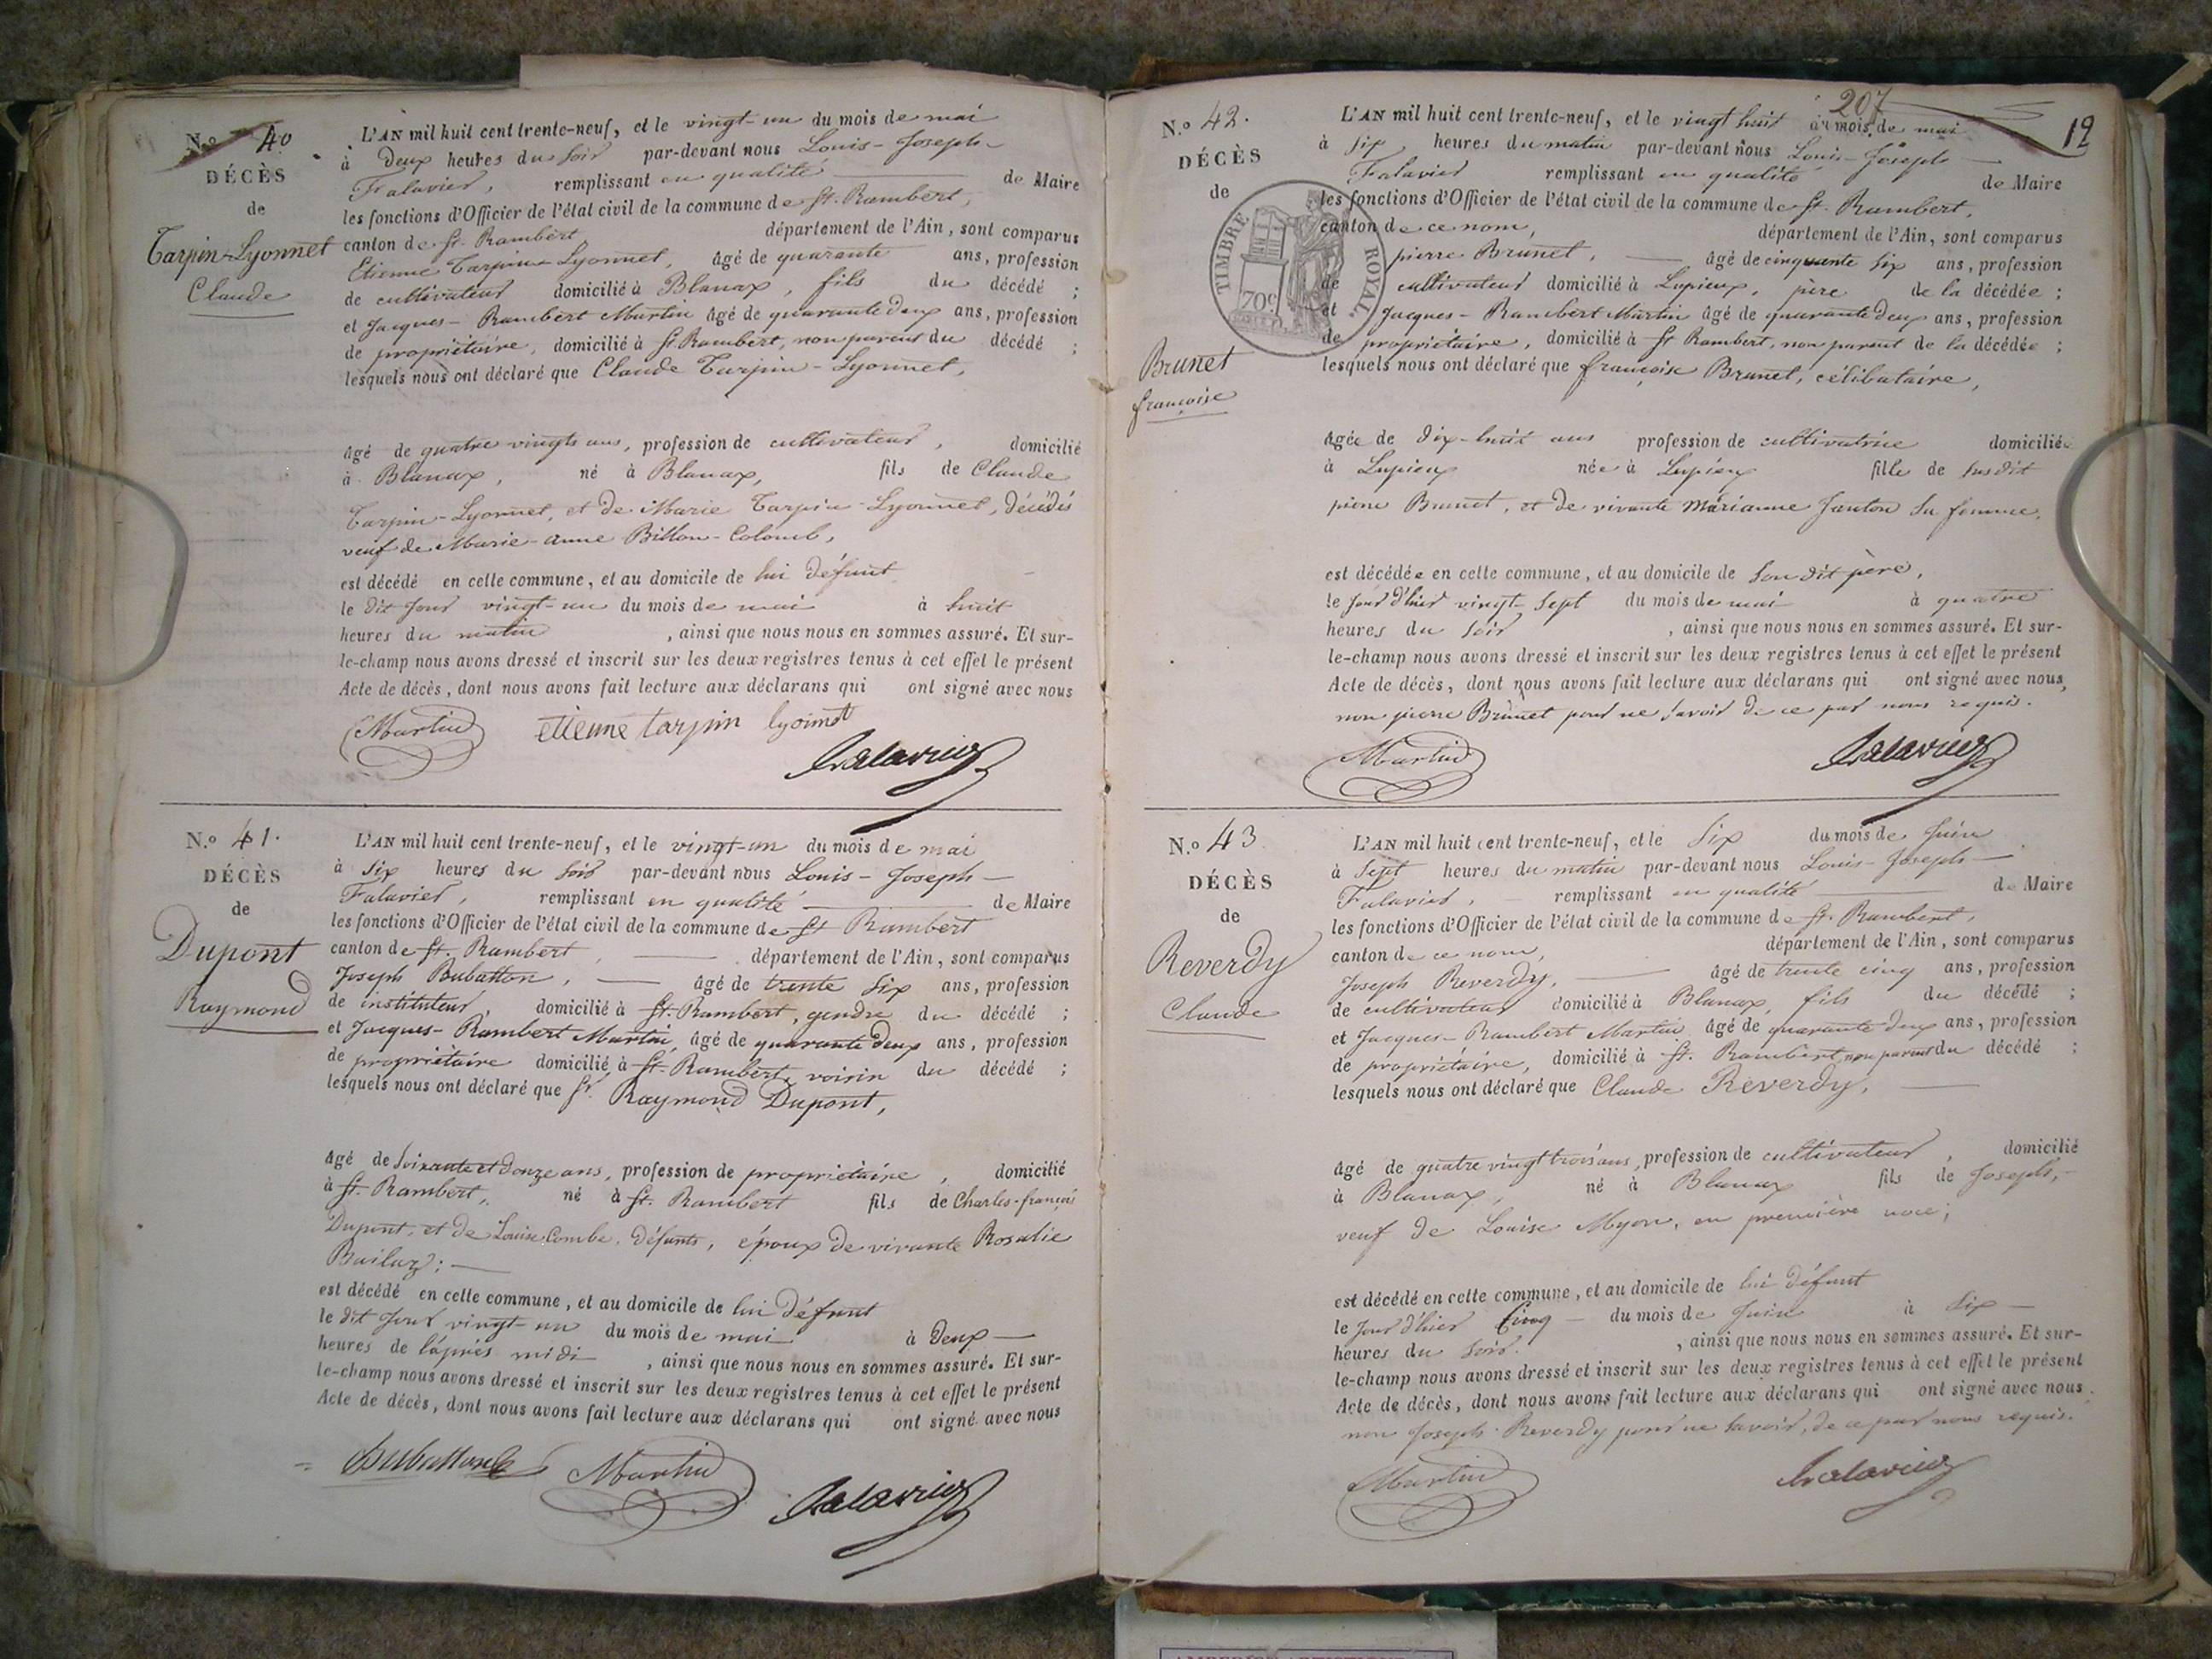 N.o 40
DÉCÈS
de
Tarpin-Lyonnet
Claude
L'AN mil huit cent trente-neuf, et le vingt-un du mois de mai
à deux heures du soir par-devant nous Louis-Joseph-
Falavier, remplissant en qualité de Maire
les fonctions d'Officier de l'état civil de la commune de St. Rambert,
canton de St. Rambert département de l'Ain, sont comparus
Etienne Tarpin-Lyonnet, âgé de quarante ans, profession
de cultivateur domicilié à Blanax, fils du décédé ;
et Jacques-Rambert Martin âgé de quarante deux ans, profession
de propriétaire, domicilié à St Rambert, non parent du décédé ;
lesquels nous ont déclaré que Claude Tarpin-Lyonnet,
âgé de quatre vingts ans, profession de cultivateur, domicilié
à Blanax, né à Blanax, fils de Claude
Tarpin-Lyonnet, et de Marie Tarpin-Lyonnet, décédés
veuf de Marie-anne Billon-Colomb,
est décédé en cette commune, et au domicile de lui défunt
le dit jour vingt-un du mois de mai à huit
heures du matin, ainsi que nous nous en sommes assuré. Et sur-
le-champ nous avons dressé et inscrit sur les deux registres tenus à cet effet le présent
Acte de décès, dont nous avons fait lecture aux déclarans qui ont signé avec nous
Martin etienne tarpin lyoinet
Falavier
N.o 41.
DÉCÈS
de
Dupont
Raymond
L'AN mil huit cent trente-neuf, et le vingt-un du mois de mai
à six heures du soir par-devant nous Louis-Joseph-
Falavier, remplissant en qualité de Maire
les fonctions d'Officier de l'état civil de la commune de St Rambert
canton de St. Rambert, département de l'Ain, sont comparus
Joseph Bubatton, âgé de trente six ans, profession
de instituteur, domicilié à St. Rambert, gendre du décédé ;
et Jacques-Rambert Martin, âgé de quarante deux ans, profession
de propriétaire domicilié à St. Rambert, voisin du décédé ;
lesquels nous ont déclaré que Sr. Raymond Dupont,
âgé de soixante et douze ans, profession de propriétaire, domicilié
à St. Rambert, né à St. Rambert fils de Charles-françois
Dupont, et de Louise Combe, défunts, époux de vivante Rosalie
Bailaz ;
est décédé en cette commune, et au domicile de lui défunt
le dit jour vingt-un du mois de mai à deux
heures de l'après midi, ainsi que nous nous en sommes assuré. Et sur-
le-champ nous avons dressé et inscrit sur les deux registres tenus à cet effet le présent
Acte de décès, dont nous avons fait lecture aux déclarans qui ont signé avec nous
Martin
Falavier
207
12
N.o 42.
DÉCÈS
de
TIMBRE ROYAL
70c
Brunet
françoise
L'AN mil huit cent trente-neuf, et le vingt huit du mois de mai
à six heures du matin par-devant nous Louis-Joseph
Falavier remplissant en qualité de Maire
les fonctions d'Officier de l'état civil de la commune de St. Rambert,
canton de ce nom, département de l'Ain, sont comparus
pierre Brunet, âgé de cinquante six ans, profession
de cultivateur domicilié à Lupieux, père de la décédée ;
et Jacques-Rambert Martin âgé de quarante deux ans, profession
de propriétaire, domicilié à St Rambert, non parent de la décédée ;
lesquels nous ont déclaré que françoise Brunet, célibataire,
âgée de dix-huit ans profession de cultivatrice domiciliée
à Lupieux née à Lupieux fille de susdit
pierre Brunet, et de vivante Marianne Janton sa femme,
est décédée en cette commune, et au domicile de son dit père,
le jour d'hier vingt-sept du mois de mai à quatre
heures du soir, ainsi que nous nous en sommes assuré. Et sur-
le-champ nous avons dressé et inscrit sur les deux registres tenus à cet effet le présent
Acte de décès, dont nous avons fait lecture aux déclarans qui ont signé avec nous,
non pierre Brunet pour ne savoir de ce par nous requis.
Martin
Falavier
N.o 43
DÉCÈS
de
Reverdy
Claude
L'AN mil huit cent trente-neuf, et le six du mois de Juin
à sept heures du matin par-devant nous Louis-Joseph-
Falavier, remplissant en qualité de Maire
les fonctions d'Officier de l'état civil de la commune de St. Rambert,
canton de ce nom, département de l'Ain, sont comparus
Joseph Reverdy, âgé de trente cinq ans, profession
de cultivateur domicilié à Blanax, fils du décédé ;
et Jacques-Rambert Martin âgé de quarante deux ans, profession
de propriétaire, domicilié à St. Rambert, non parent du décédé ;
lesquels nous ont déclaré que Claude Reverdy,
âgé de quatre vingt trois ans, profession de cultivateur, domicilié
à Blanax, né à Blanax fils de Joseph,
veuf de Louise Myon, en première noce ;
est décédé en cette commune, et au domicile de lui défunt
le jour d'hier Cinq du mois de Juin à six
heures du soir., ainsi que nous nous en sommes assuré. Et sur-
le-champ nous avons dressé et inscrit sur les deux registres tenus à cet effet le présent
Acte de décès, dont nous avons fait lecture aux déclarans qui ont signé avec nous.
non Joseph Reverdy pour ne savoir, de ce par nous requis.
Martin
Falavier